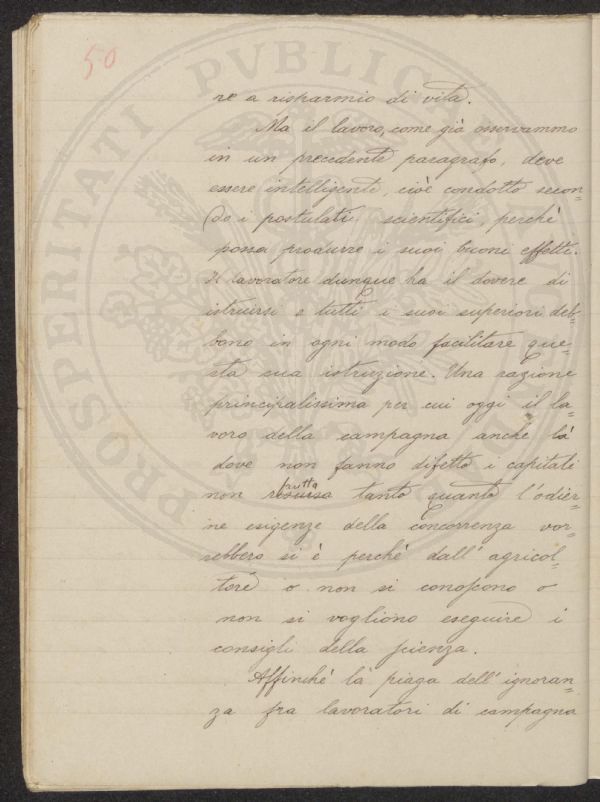 50
re a risparmio di vita.
Ma il lavoro, come già osservammo
in un precedente paragrafo, deve
essere intelligente, cioè condotto secon-
do i postulati scientifici, perché
possa produrre i suoi buoni effetti.
Il lavoratore dunque ha il dovere di
istruirsi e tutti i suoi superiori deb-
bono in ogni modo facilitare que-
sta sua istruzione. Una ragione
principalissima per cui oggi il la-
voro della campagna anche là
dove non fanno difetto i capitali
non frutta tanto quanto l'odier-
ne esigenze della concorrenza vor-
rebbero si è perché dall'agricol-
tore o non si conoscono o
non si vogliono eseguire i
consigli della scienza.
Affinché la piaga dell'ignoran-
za fra lavoratori di campagna
PROSPERITATI PVBLICAE